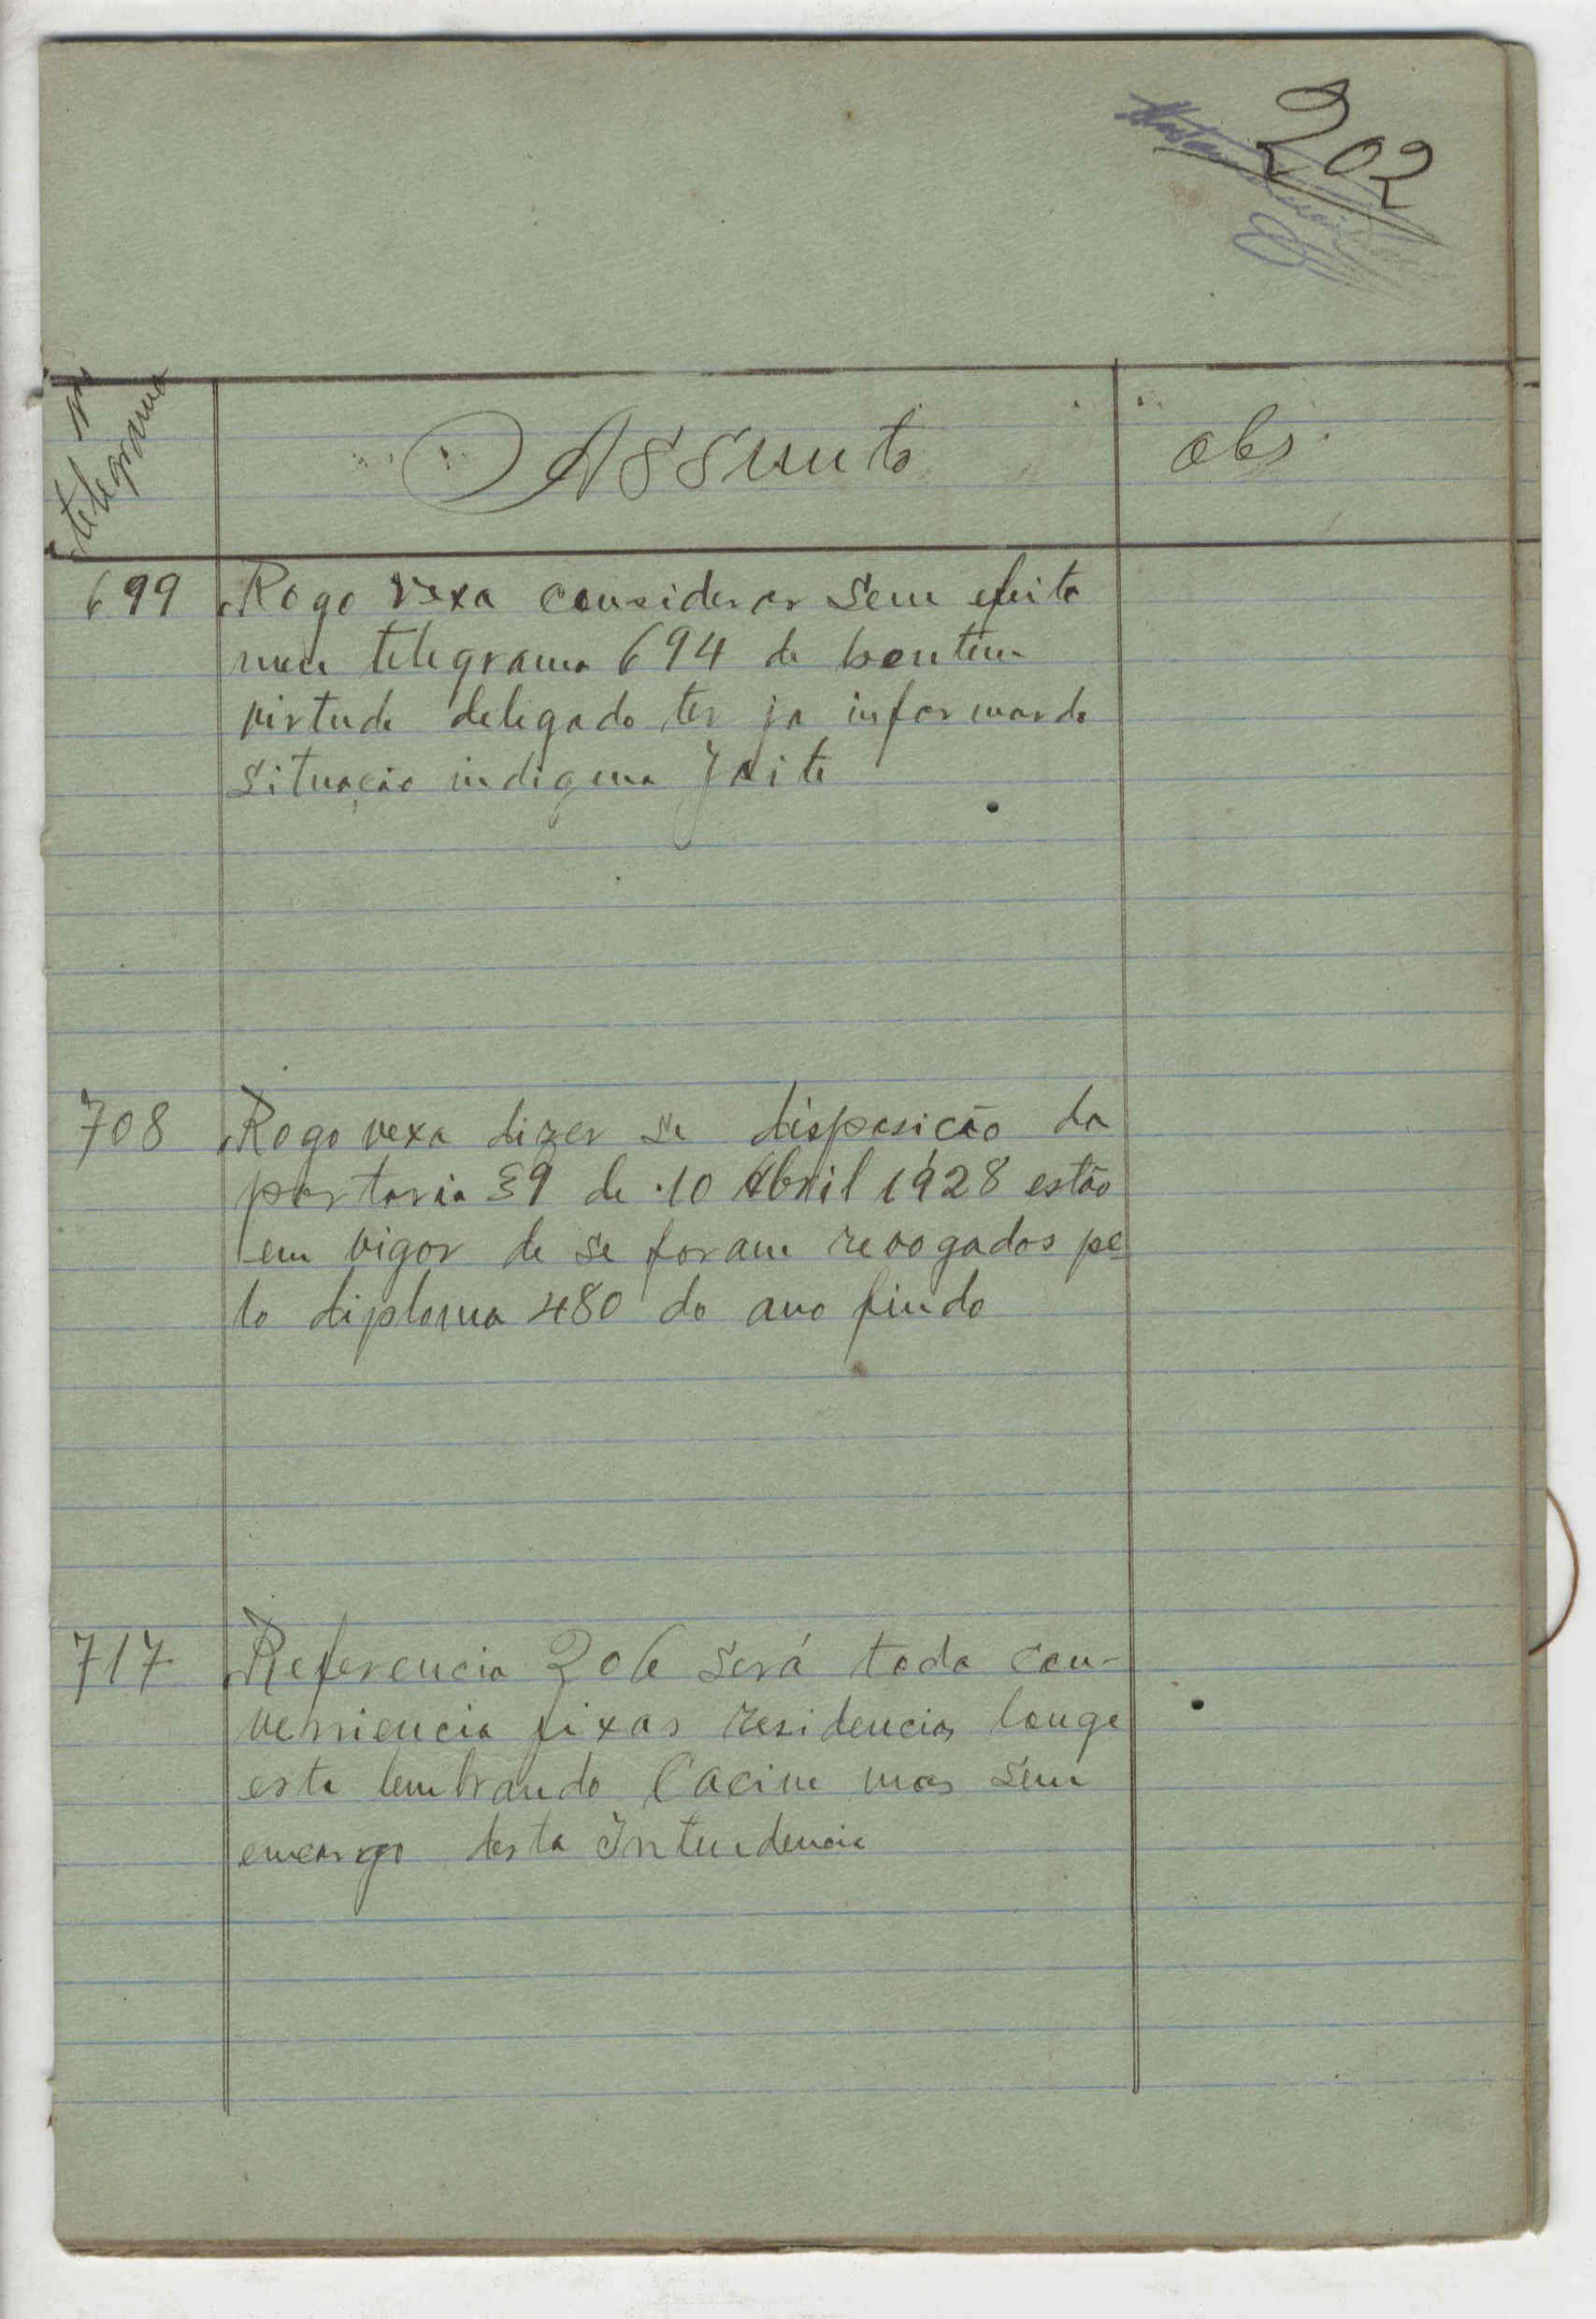 202
Nº telegrama
Assunto
obs.
699 Rogo vexa considerar sem efeito
meu telegrama 694 de hontem
virtude delegado ter ja informardo
situação indigena Jaite
708 Rogo vexa dizer se disposição da
portaria 39 de 10 Abril 1928 estão
em vigor de se foram revogados pe
lo diploma 480 do ano findo
717 Referencia 206 será toda con-
veniencia fixas residencias longe
este lembrando Cacine mas sem
encargo desta Intendencia